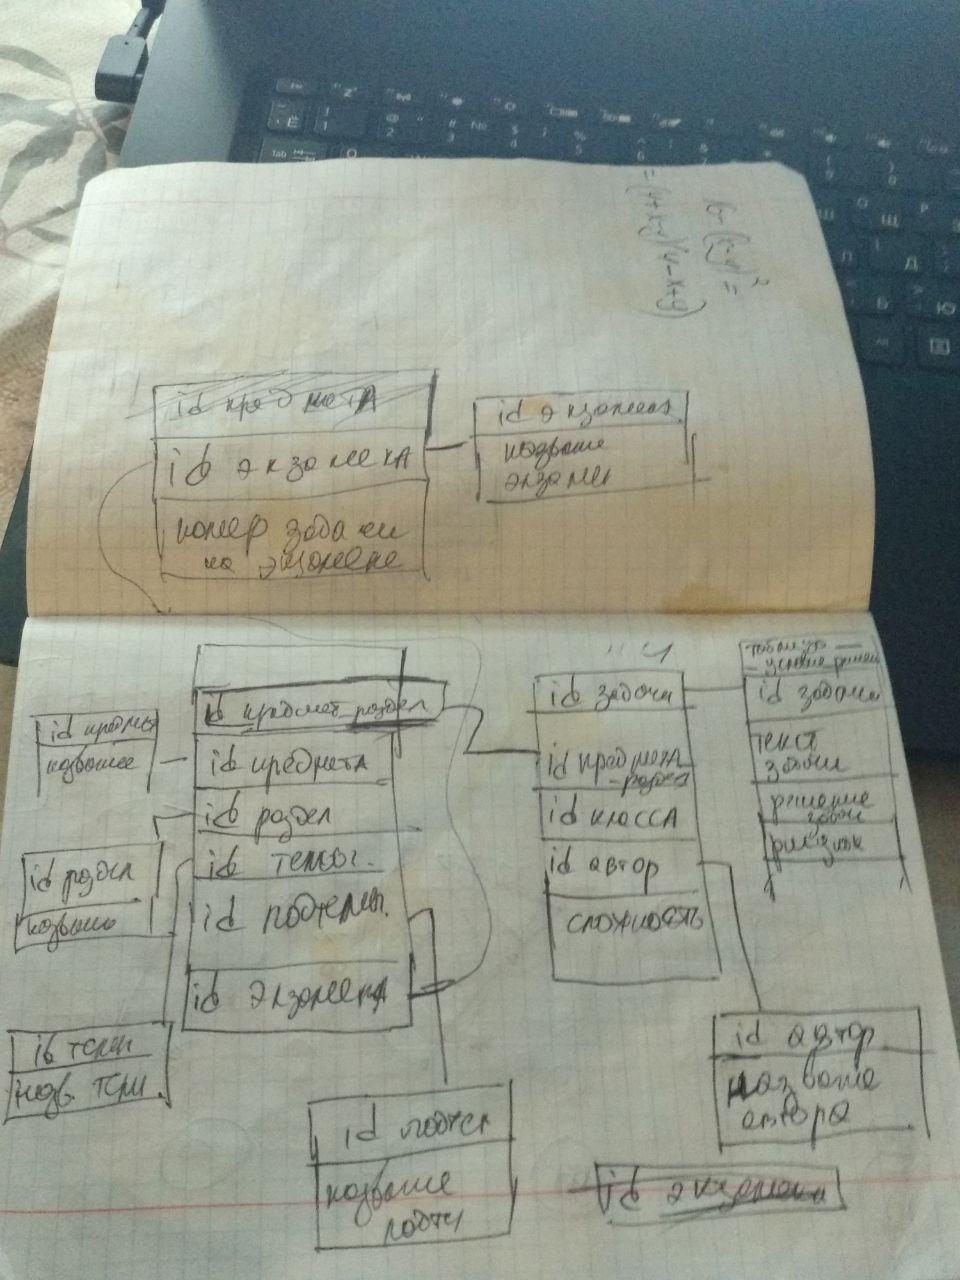 16-(x-y)² =
=(4+x-y)(4-x+y)
id предмета
id экзамена
номер задачи
на экзамене
id экзамена
название
экзамен
id предмет_раздел
id предмета
id раздел
id темы.
id подтемы.
id экзамена
id предмета
название
id раздел
название
id темы
назв. тем.
id подтем
название
подтем
id задачи
id предмета
-раздел
id класса
id автор
сложность
таблица
id задачи
текст
задачи
решение
id автор
название
автора
id экзамена